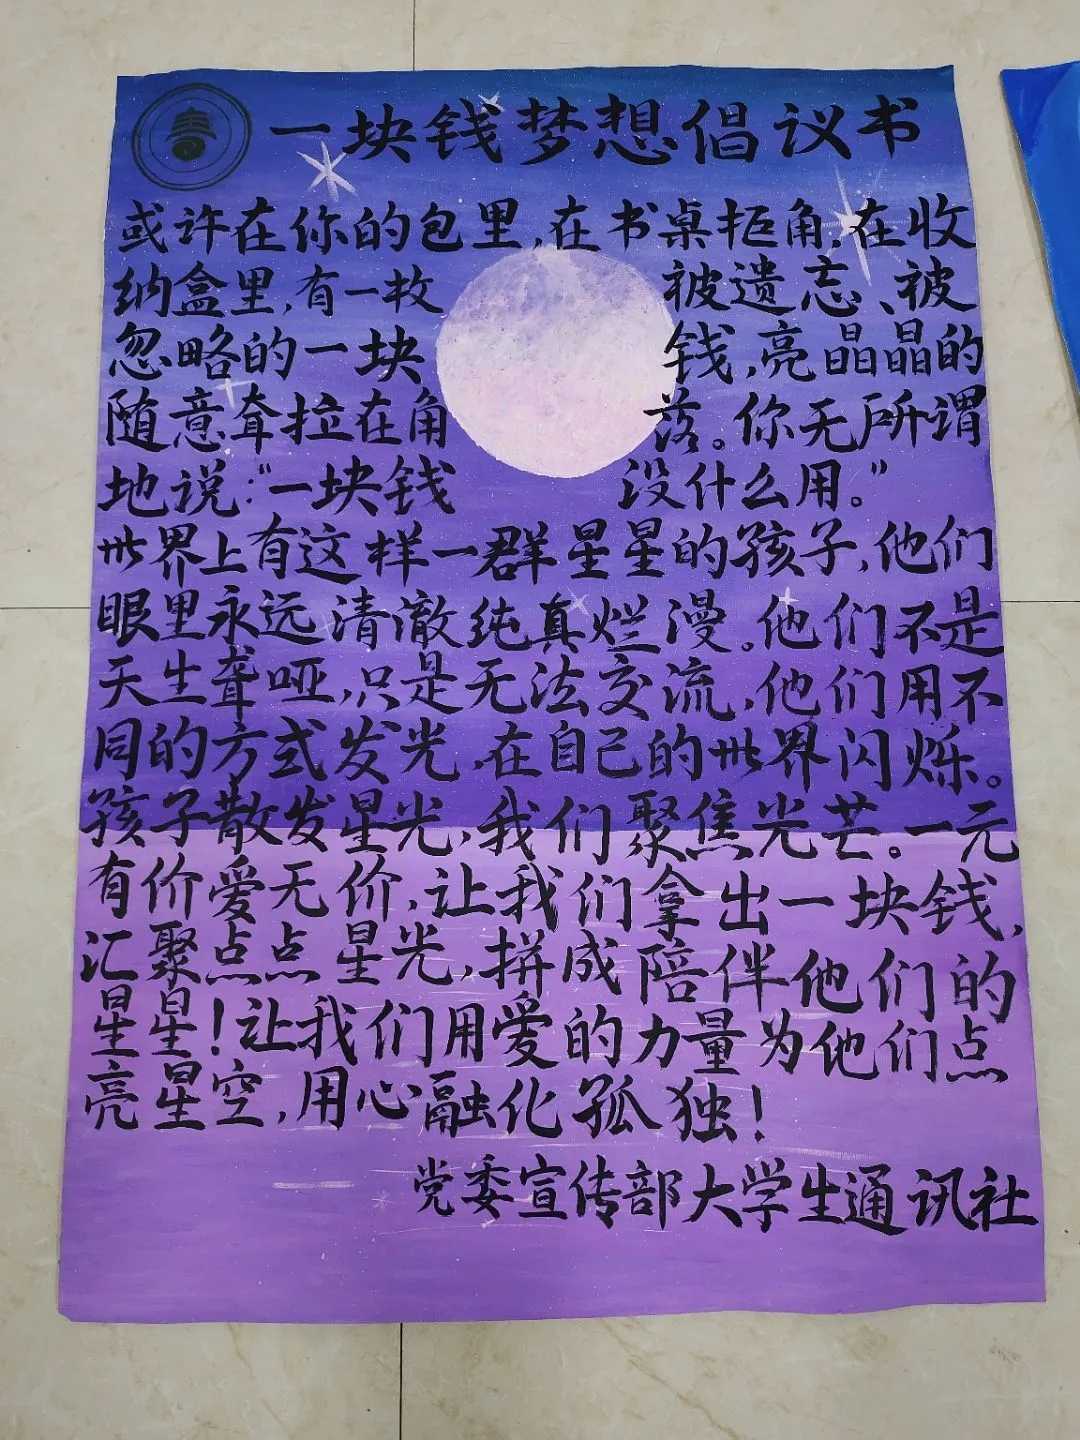 一块钱梦想倡议书
或许在你的包里,在书桌拒角,在收
纳盒里,有一枚被遗忘、被
忽略的一块钱,亮晶晶的
随意耷拉在角落。你无所谓
地说:“一块钱没什么用。”
世界上有这样一群星星的孩子,他们
眼里永远清澈纯真烂漫。他们不是
天生聋哑,只是无法交流,他们用不
同的方式发光,在自己的世界闪烁。
孩子散发星光,我们聚焦光芒。一元
有价爱无价,让我们拿出一块钱,
汇聚点点星光,拼成陪伴他们的
星星!让我们用爱的力量为他们点
亮星空,用心融化孤独!
党委宣传部大学生通讯社